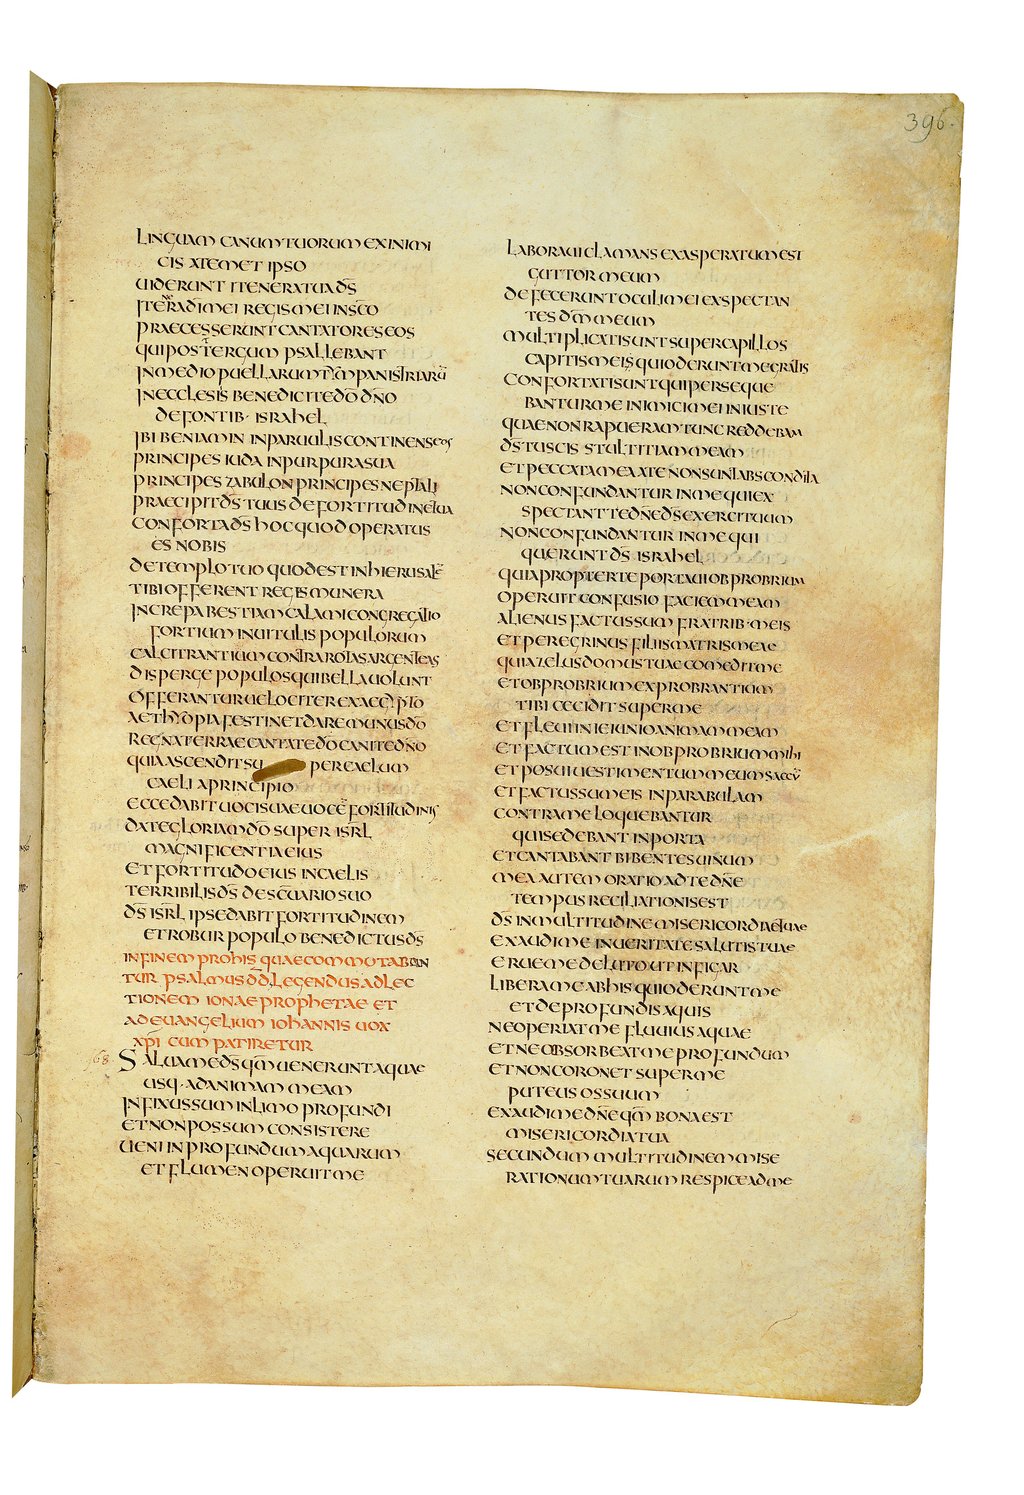 396.
LINGUAM CANUM TUORUM EX INIMI
CIS XTEMET IPSO
UIDERUNT ITENERA TUA D̅S̅
ITENERA D̅I̅ MEI REGIS MEI IN S̅C̅O̅
PRAECESSERUNT CANTATORES EOS
QUI POST TERGUM PSALLEBANT
IN MEDIO PUELLARUM TYMPANISTRIARŪ
IN ECCLESIS BENEDICITE D̅O̅ D̅N̅O̅
DE FONTIB· ISRAHEL
IBI BENIAMIN IN PARUULIS CONTINENS EOS
PRINCIPES IUDA IN PURPURA SUA
PRINCIPES ZABULON PRINCIPES NEPTALI
PRAECIPIT D̅S̅ TUUS DE FORTITUDINE TUA
CONFORTA D̅S̅ HOC QUOD OPERATUS
ES NOBIS
DE TEMPLO TUO QUOD EST IN HIERUSALĒ
TIBI OFFERENT REGIS MUNERA
INCREPA BESTIAM CALAMI CONGREGATIO
FORTIUM IN UITULIS POPULORUM
CALCITRANTIUM CONTRA ROTAS ARGENTEAS
DISPERGE POPULOS QUI BELLA UOLUNT
OFFERANTUR UELOCITER EX AEGYPTO
AETHYOPIA FESTINET DARE MUNUS D̅O̅
REGNA TERRAE CANTATE D̅O̅ CANITE D̅N̅O̅
QUI ASCENDIT SU PER CAELUM
CAELI A PRINCIPIO
ECCE DABIT UOCI SUAE UOCĒ FORTITUDINIS
DATE GLORIAM D̅O̅ SUPER ISR̅L̅
MAGNIFICENTIA EIUS
ET FORTITUDO EIUS IN CAELIS
TERRIBILIS D̅S̅ DE S̅C̅UARIO SUO
D̅S̅ ISR̅L̅ IPSE DABIT FORTITUDINEM
ET ROBUR POPULO BENEDICTUS D̅S̅
IN FINEM PRO HIS QUAE COMMUTABUN
TUR PSALMUS D̅D̅ LEGENDUS AD LEC
TIONEM IONAE PROPHETAE ET
AD EUANGELIUM IOHANNIS UOX
X̅P̅I̅ CUM PATIRETUR
68
SALUA ME D̅S̅ QM̅ UENERUNT AQUAE
USQ· AD ANIMAM MEAM
INFIXUS SUM IN LIMO PROFUNDI
ET NON POSSUM CONSISTERE
UENI IN PROFUNDUM AQUARUM
ET FLUMEN OPERUIT ME
LABORAUI CLAMANS EXASPERATUM EST
GUTTOR MEUM
DEFECERUNT OCULI MEI EXSPECTAN
TES D̅M̅ MEUM
MULTIPLICATI SUNT SUPER CAPILLOS
CAPITIS MEI QUI ODERUNT ME GRATIS
CONFORTATI SUNT QUI PERSEQUE
BANTUR ME INIMICI MEI INIUSTE
QUAE NON RAPUERAM TUNC REDDEBAM
D̅S̅ TU SCIS STULTITIAM MEAM
ET PECCATA MEA A TE NON SUNT ABSCONDITA
NON CONFUNDANTUR IN ME QUI EX
SPECTANT TE D̅N̅E̅ D̅S̅ EXERCITUUM
NON CONFUNDANTUR IN ME QUI
QUERUNT D̅S̅ ISRAHEL
QUIA PROPTER TE PORTAUI OBPROBRIUM
OPERUIT CONFUSIO FACIEM MEAM
ALIENUS FACTUS SUM FRATRIB· MEIS
ET PEREGRINUS FILIIS MATRIS MEAE
QUIA ZELUS DOMUS TUAE COMEDIT ME
ET OBPROBRIUM EXPROBRANTIUM
TIBI CECIDIT SUPER ME
ET FLEUI IN IEIUNIO ANIMAM MEAM
ET FACTUM EST IN OBPROBRIUM MIHI
ET POSUI UESTIMENTUM MEUM SACCŪ
ET FACTUS SUM EIS IN PARABULAM
CONTRA ME LOQUEBANTUR
QUI SEDEBANT IN PORTA
ET CANTABANT BIBENTES UINUM
MEA AUTEM ORATIO AD TE D̅N̅E̅
TEMPUS RECILIATIONIS EST
D̅S̅ IN MULTITUDINE MISERICORDIAE TUAE
EXAUDI ME IN UERITATE SALUTIS TUAE
ERUE ME DE LUTO UT INFIGAR
LIBERA ME AB HIS QUI ODERUNT ME
ET DE PROFUNDIS AQUIS
NE OPERIAT ME FLUUIUS AQUAE
ET NE OBSORBEAT ME PROFUNDUM
ET NON CORONET SUPER ME
PUTEUS OS SUUM
EXAUDI ME D̅N̅E̅ QM̅ BONA EST
MISERICORDIA TUA
SECUNDUM MULTITUDINEM MISE
RATIONUM TUARUM RESPICE AD ME